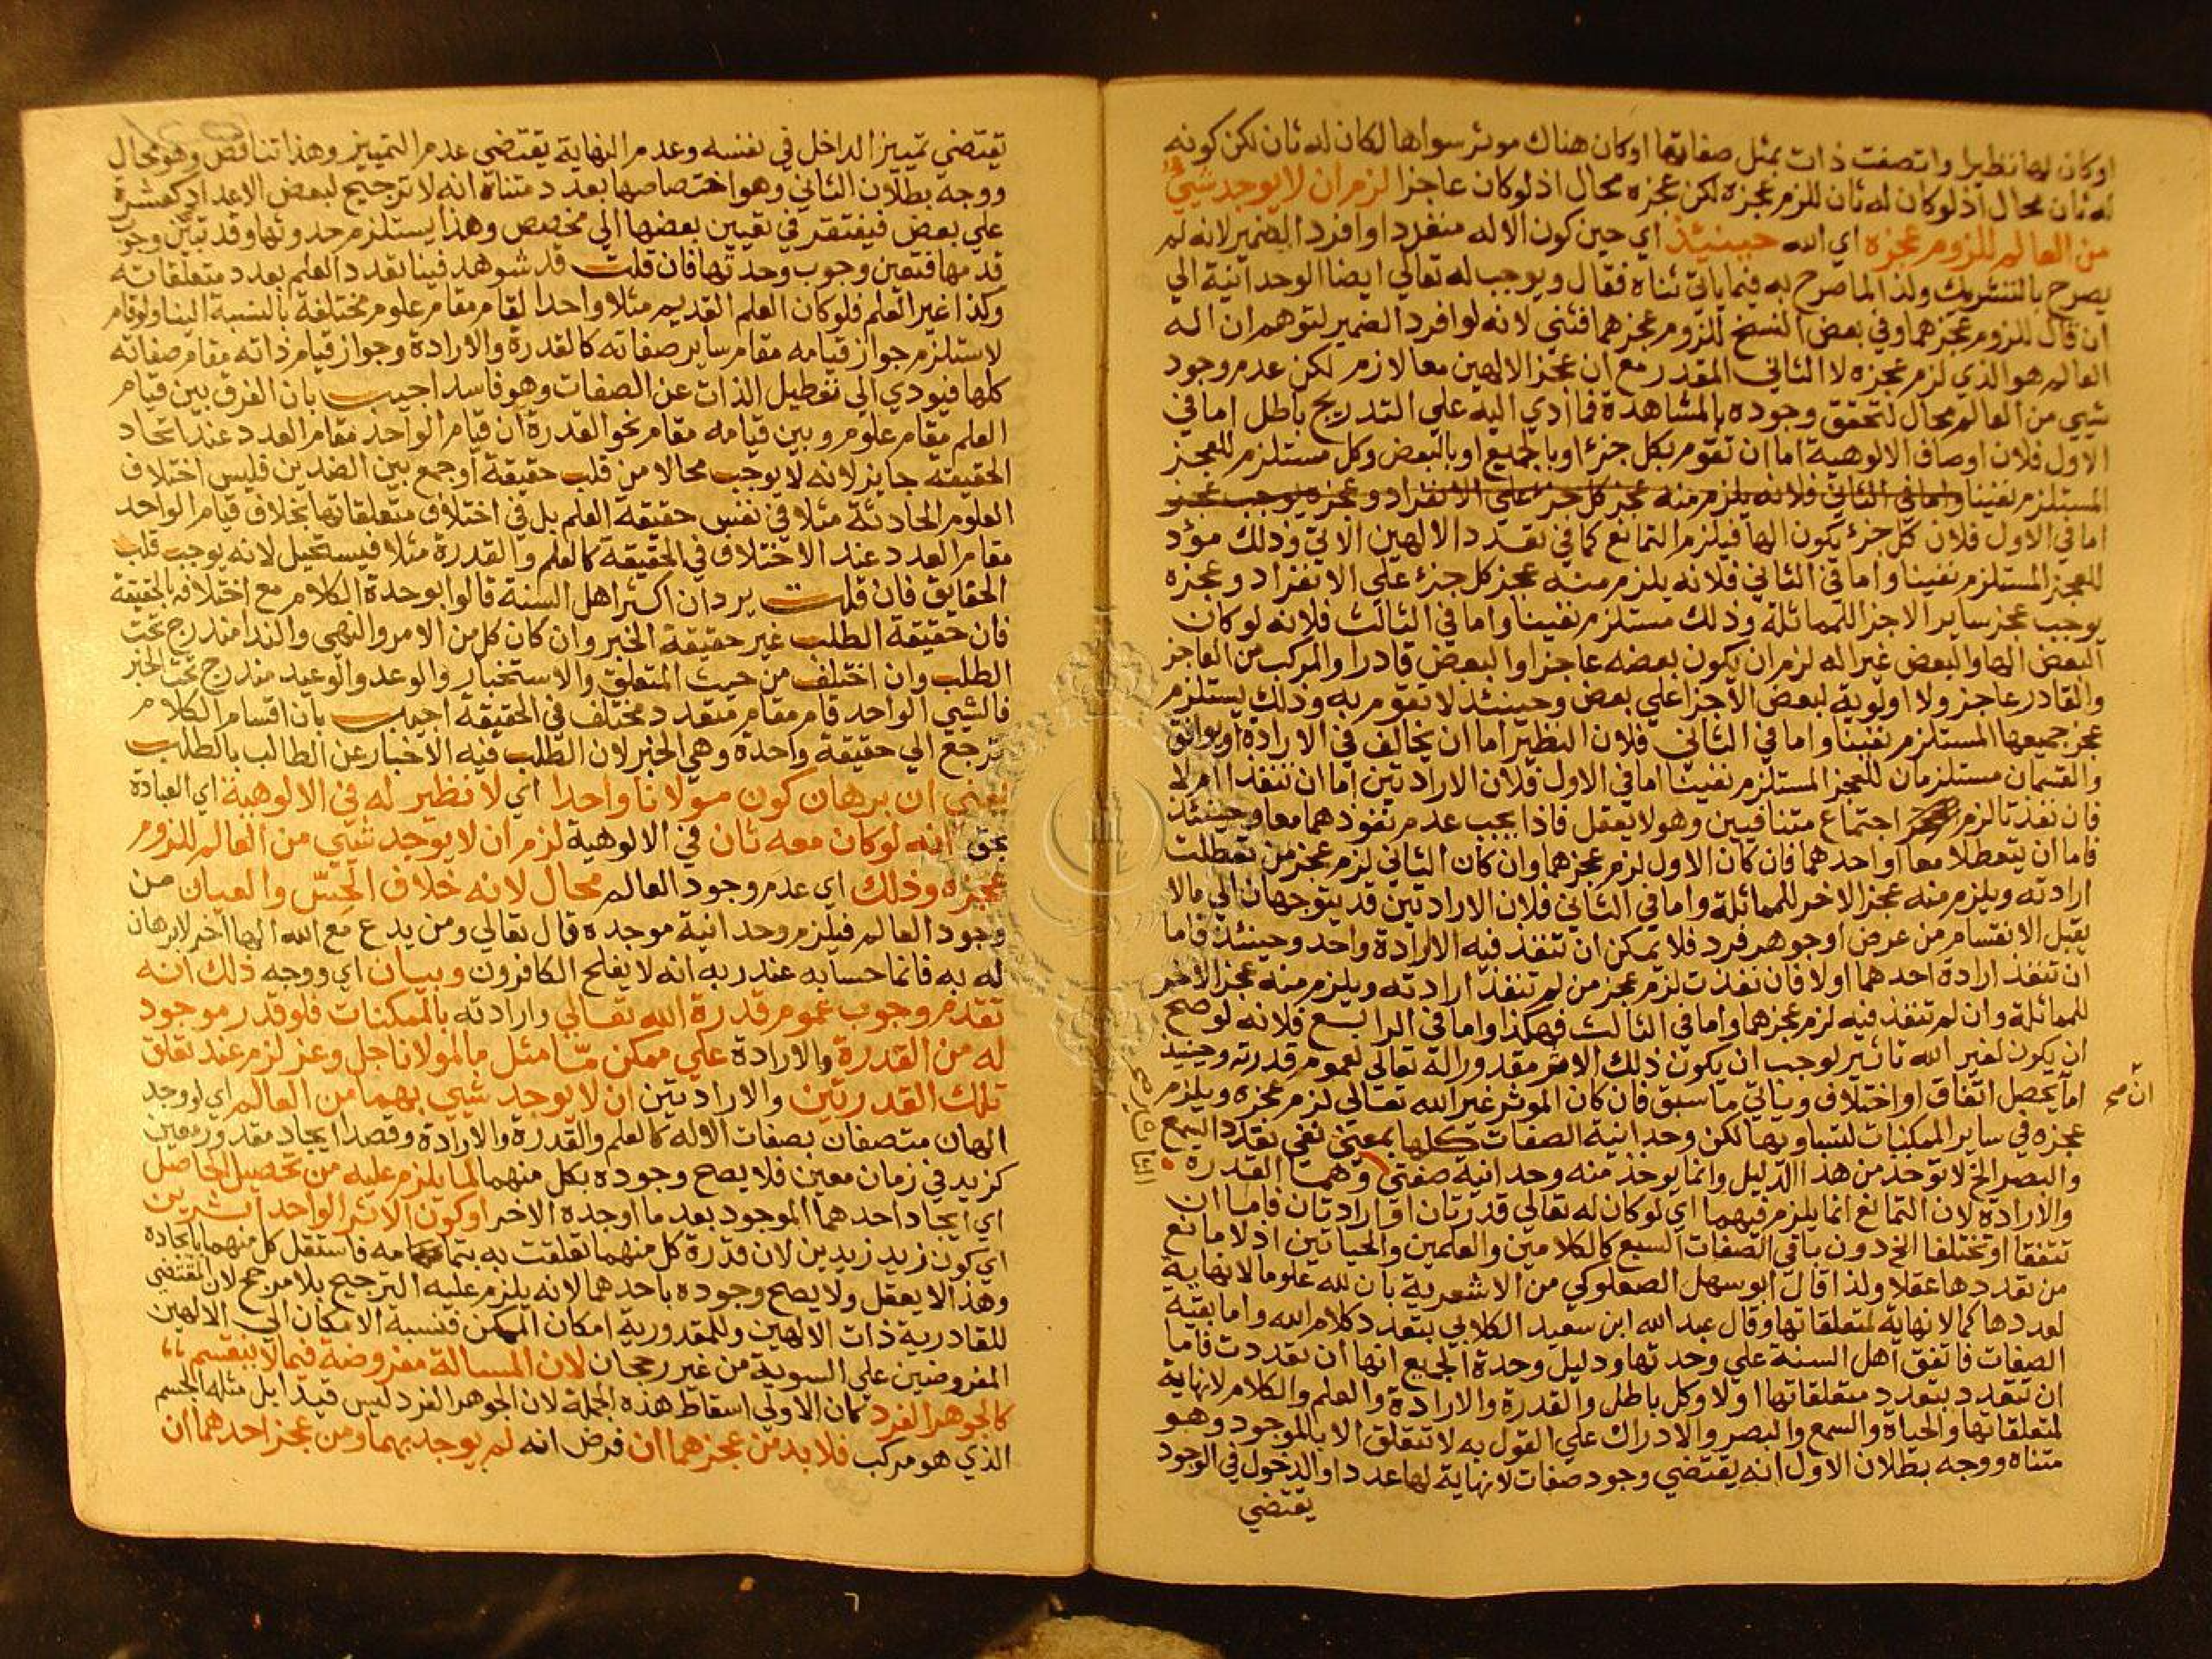 اوكان لها نظير او اتصفت ذات بمثل صفاتها اوكان هناك موثر سواها لكان له ثان لكن كونه
له ثان محال اذ لوكان له ثان للزم عجزه لكن عجزه محال اذ لوكان عاجزا لزم ان لا يوجد شيئ
من العالم للزوم عجزه اي الله حينئذ اي حين كون الاله منفردا وافرد الضمير لانه لم
يصرح بالتشريك ولذا لما صرح به فيما ياتي ثناه فقال ويوجب له تعالي ايضا الوحدانية الي
ان قال للزوم عجزهما وفي بعض النسخ للزوم عجزهما فثني لانه لو افرد الضمير لتوهم ان اله
العالم هو الذي لزم عجزه لا الثاني المقدر مع ان عجز الالهين معا لازم لكن عدم وجود
شيي من العالم محال لتحقق وجوده بالمشاهدة فما ادي اليه علي التدريج باطل اما في
الاول فلان اوصاف الالوهية اما ان تقوم بكل جزء او بالجميع او بالبعض وكل مستلزم للعجز
المستلزم نفينا واما في الثاني فلانه يلزم منه عجز كل جزء علي الانفراد وعجزه يوجب عجز
اما في الاول فلان كل جزء يكون الها فيلزم التمانع كما في تعدد الالهين الاتي وذلك مؤد
للعجز المستلزم نفينا واما في الثاني فلانه يلزم منه عجز كل جزء علي الانفراد وعجزه
يوجب عجز ساير الاجزا للمماثلة وذلك مستلزم نفينا واما في الثالث فلانه لو كان
البعض الها والبعض غير اله لزم ان يكون بعضه عاجزا والبعض قادرا والمركب من العاجز
والقادر عاجز ولا اولوية لبعض الاجزا علي بعض وحينئذ لا تقوم به وذلك يستلزم
عجز جميعها المستلزم نفينا واما في الثاني فلان النظير اما ان يخالف في الارادة او يوافق
والقسمان مستلزمان للعجز المستلزم نفينا اما في الاول فلان الارادتين اما ان تنفذا ام لا
فان نفذتا لزم اجتماع متنافيين وهو لا يعقل فاذا يجب عدم نفوذهما معا وحينئذ
فاما ان يتعطلا معا او احدهما فان كان الاول لزم عجزهما وان كان الثاني لزم عجز من تعطلت
ارادته ويلزم منه عجز الاخر للمماثلة واما في الثاني فلان الارادتين قد يتوجهان الي مالا
يقبل الانقسام من عرض او جوهر فرد فلا يمكن ان تنفذ فيه الا ارادة واحد وحينئذ فاما
ان تنفذ ارادة احدهما اولا فان نفذت لزم عجز من لم تنفذ ارادته ويلزم منه عجز الاخر
للمماثلة وان لم تنفذ فيه لزم عجزهما واما في الثالث فهكذا واما في الرابع فلانه لو صح
ان يكون لغير الله تاثير لوجب ان يكون ذلك الاثر مقدورا له تعالي لعموم قدرته وحينيذ
اما يحصل اتفاق او اختلاف وياتي ما سبق فان كان الموثر غير الله تعالي لزم عجزه ويلزم
ان صح
عجزه في ساير الممكنات لتساويها لكن وحدانية الصفات كلها بمعني نفي تعدد السمع
والبصر الخ لا توخذ من هذا الدليل وانما يوخذ منه وحدانية صفتي وهما القدرة
والارادة لان التمانع انما يلزم فيهما اي لوكان له تعالي قدرتان او ارادتان فاما ان
تتفقا او تختلفا الخ دون باقي الصفات السبع كالكلامين والعلمين والحياتين اذ لا مانع
من تعددها عقلا ولذا قال ابو سهل الصعلوكي من الاشعرية بان لله علوما لا نهاية
لعددها كما لا نهاية لمتعلقاتها وقال عبد الله ابن سعيد الكلابي بتعدد كلام الله واما بقية
الصفات فاتفق اهل السنة علي وحدتها ودليل وحدة الجميع انها ان تعددت فاما
ان تتعدد بتعدد متعلقاتها اولا وكل باطل والقدرة والارادة والعلم والكلام لا نهاية
لمتعلقاتها والحياة والسمع والبصر والادراك علي القول به لا تتعلق الا بالموجود وهو
متناه ووجه بطلان الاول انه يقتضي وجود صفات لا نهاية لها عددا والدخول في الوجود
يقتضي
تقتضي تمييز الداخل في نفسه وعدم النهاية يقتضي عدم التمييز وهذا تناقض وهو محال
ووجه بطلان الثاني وهو اختصاصها بعدد متناه انه لا ترجيح لبعض الاعداد كعشرة
علي بعض فيفتقر في تعيين بعضها الي مخصص وهذا يستلزم حدوثها وقد تبين وجوب
قدمها فتعين وجوب وحدتها فان قلت قد شوهد فينا تعدد العلم بعدد متعلقاته
وكذا غير العلم فلو كان العلم القديم مثلا واحدا لقام مقام علوم مختلفة بالنسبة الينا ولو قام
لاستلزم جواز قيامه مقام ساير صفاته كالقدرة والارادة وجواز قيام ذاته مقام صفاته
كلها فيودي الي تعطيل الذات عن الصفات وهو فاسد اجيب بان الفرق بين قيام
العلم مقام علوم وبين قيامه مقام نحو القدرة ان قيام الواحد مقام العدد عند اتحاد
الحقيقة جايز لانه لا يوجب محالا من قلب حقيقة او جمع بين الضدين فليس اختلاف
العلوم الحادثة مثلا في نفس حقيقة العلم بل في اختلاف متعلقاتها بخلاف قيام الواحد
مقام العدد عند الاختلاف في الحقيقة كالعلم والقدرة مثلا فيستحيل لانه يوجب قلب
الحقايق فان قلت يرد ان اكثر اهل السنة قالوا بوحدة الكلام مع اختلافه بالحقيقة
فان حقيقة الطلب غير حقيقة الخبر وان كان كل من الامر والنهي والندا مندرج تحت
الطلب وان اختلف من حيث المتعلق والاستخبار والوعد والوعيد مندرج تحت الخبر
فالشي الواحد قام مقام متعدد مختلف في الحقيقة اجيب بان اقسام الكلام
ترجع الي حقيقة واحدة وهي الخبر لان الطلب فيه الاخبار عن الطالب بالطلب
يعني ان برهان كون مولانا واحدا اي لا نظير له في الالوهية اي العبادة
بحق انه لوكان معه ثان في الالوهية لزم ان لا يوجد شيي من العالم للزوم
عجزه وذلك اي عدم وجود العالم محال لانه خلاف الحسّ والعيان من
وجود العالم فيلزم وحدانية موجده قال تعالي ومن يدع مع الله الها اخر لا برهان
له به فانما حسابه عند ربه انه لا يفلح الكافرون وبيان اي ووجه ذلك انه
تقدم وجوب عموم قدرة الله تعالي وارادته بالممكنات فلو قدر موجود
له من القدرة والارادة علي ممكن مّا مثل ما لمولانا جل وعز لزم عند تعلق
تلك القدرتين والارادتين ان لا يوجد شيي بهما من العالم اي لو وجد
الهان متصفان بصفات الاله كالعلم والقدرة والارادة وقصدا ايجاد مقدور معين
كزيد في زمان معين فلا يصح وجوده بكل منهما لما يلزم عليه من تحصيل الحاصل
اي ايجاد احدهما الموجود بعد ما اوجده الاخر او كون الاثر الواحد اثرين
اي كون زيد زيدين لان قدرة كل منهما تعلقت به بتمامه فاستقل كل منهما بايجاده
وهذا لا يعقل ولا يصح وجوده باحدهما لانه يلزم عليه الترجيح بلا مرجح لان المقتضي
للقادرية ذات الالهين وللمقدورية امكان الممكن فنسبة الامكان الي الالهين
المفروضين علي السوية من غير رجحان لان المسالة مفروضة فيما لا ينقسم
كالجوهر الفرد كان الاولي اسقاط هذه الجملة لان الجوهر الفرد ليس قيدا بل مثله الجسم
الذي هو مركب فلا بد من عجزهما ان فرض انه لم يوجد بهما ومن عجز احدهما ان